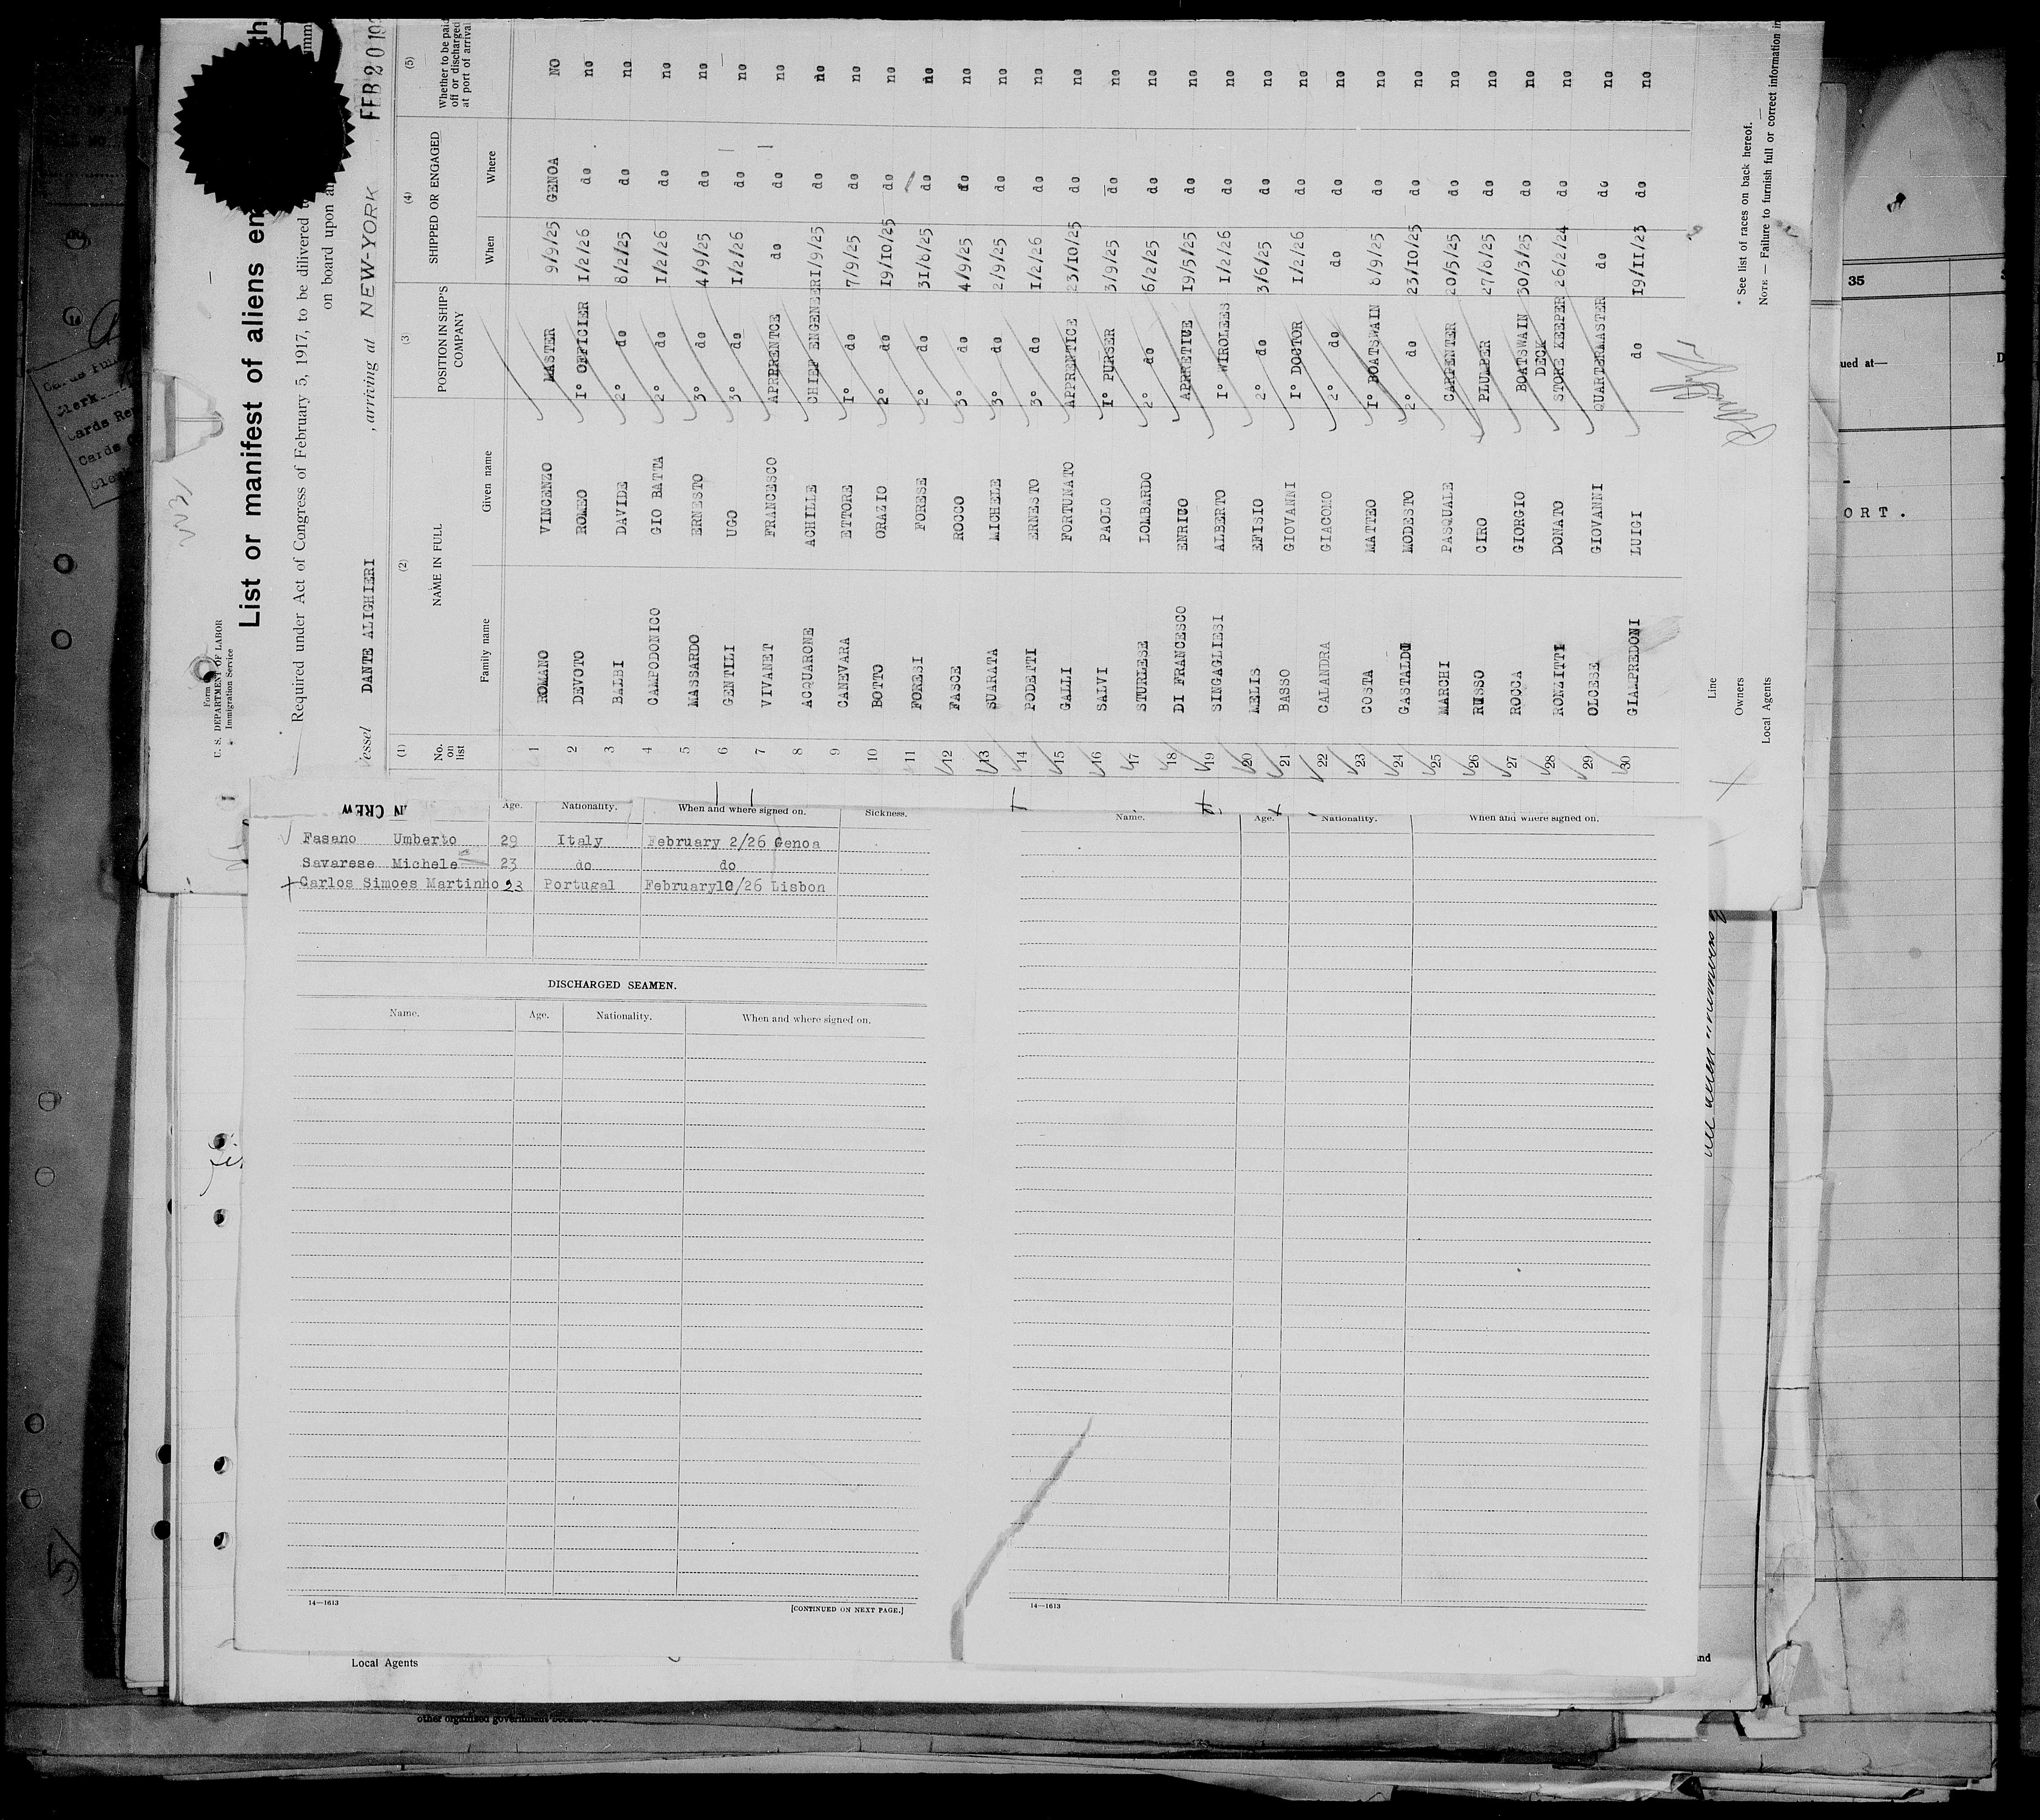 Form
U. S. DEPARTMENT OF LABOR
Immigration Service
List or manifest of aliens em
Required under Act of Congress of February 5, 1917, to be dilivered
on board upon
Vessel DANTE ALIGHIERI , arriving at NEW-YORK FEB 20 19
(1) (2) (3) (4) (5)
No. on list NAME IN FULL POSITION IN SHIP'S COMPANY SHIPPED OR ENGAGED Whether to be paid off or discharged at port of arrival
Family name Given name When Where
1 ROMANO VINCENZO MASTER 9/9/25 GENOA NO
2 DEVOTO ROMEO I° OFFICIER I/2/26 do no
3 BALBI DAVIDE 2° do 8/2/25 do no
4 CAMPODONICO GIO BATTA 2° do I/2/26 do no
5 MASSARDO ERNESTO 3° do 4/9/25 do no
6 GENTILI UGO 3° do I/2/26 do no
7 VIVANET FRANCESCO APPRENTCE do do no
8 ACQUARONE ACHILLE CHIEF ENGENEER I/9/25 do no
9 CANEVARA ETTORE I° do 7/9/25 do no
10 BOTTO ORAZIO 2° do I9/IO/25 do no
11 FORESI FORESE 2° do 3I/8/25 do no
12 FASCE ROCCO 3° do 4/9/25 do no
13 SUARATA MICHELE 3° do 2/9/25 do no
14 PODETTI ERNESTO 3° do I/2/26 do no
15 GALLI FORTUNATO APPRENTICE 23/IO/25 do no
16 SALVI PAOLO I° PURSER 3/9/25 do no
17 STURLESE LOMBARDO 2° do 6/2/25 do no
18 DI FRANCESCO ENRICO APRRETICE I9/5/25 do no
19 SINGAGLIESI ALBERTO I° WIROLEES I/2/26 do no
20 MELIS EFISIO 2° do 3/6/25 do no
21 BASSO GIOVANNI I° DOCTOR I/2/26 do no
22 CALANDRA GIACOMO 2° do do do no
23 COSTA MATTEO I° BOATSWAIN 8/9/25 do no
24 GASTALDI MODESTO 2° do 23/IO/25 do no
25 MARCHI PASQUALE CARPENTER 20/5/25 do no
26 RUSSO CIRO PLUMPER 27/8/25 do no
27 ROCCA GIORGIO BOATSWAIN DECK 30/3/25 do no
28 RONZITTI DONATO STORE KEEPER 26/2/24 do no
29 OLCESE GIOVANNI QUARTERMASTER do do no
30 GIAMPREDONI LUIGI do I9/II/23 do no
Line
Owners
Local Agents
* See list of races on back hereof.
NOTE — Failure to furnish full or correct information in
IN CREW
Age. Nationality. When and where signed on. Sickness.
Fasano Umberto 29 Italy February 2/26 Genoa
Savarese Michele 23 do do
Carlos Simoes Martinho 23 Portugal February10/26 Lisbon
DISCHARGED SEAMEN.
Name. Age. Nationality. When and where signed on.
14—1613
[CONTINUED ON NEXT PAGE.]
Name. Age. Nationality. When and where signed on.
14—1613
Local Agents
and
35
ued at—
ORT.
other organised government because